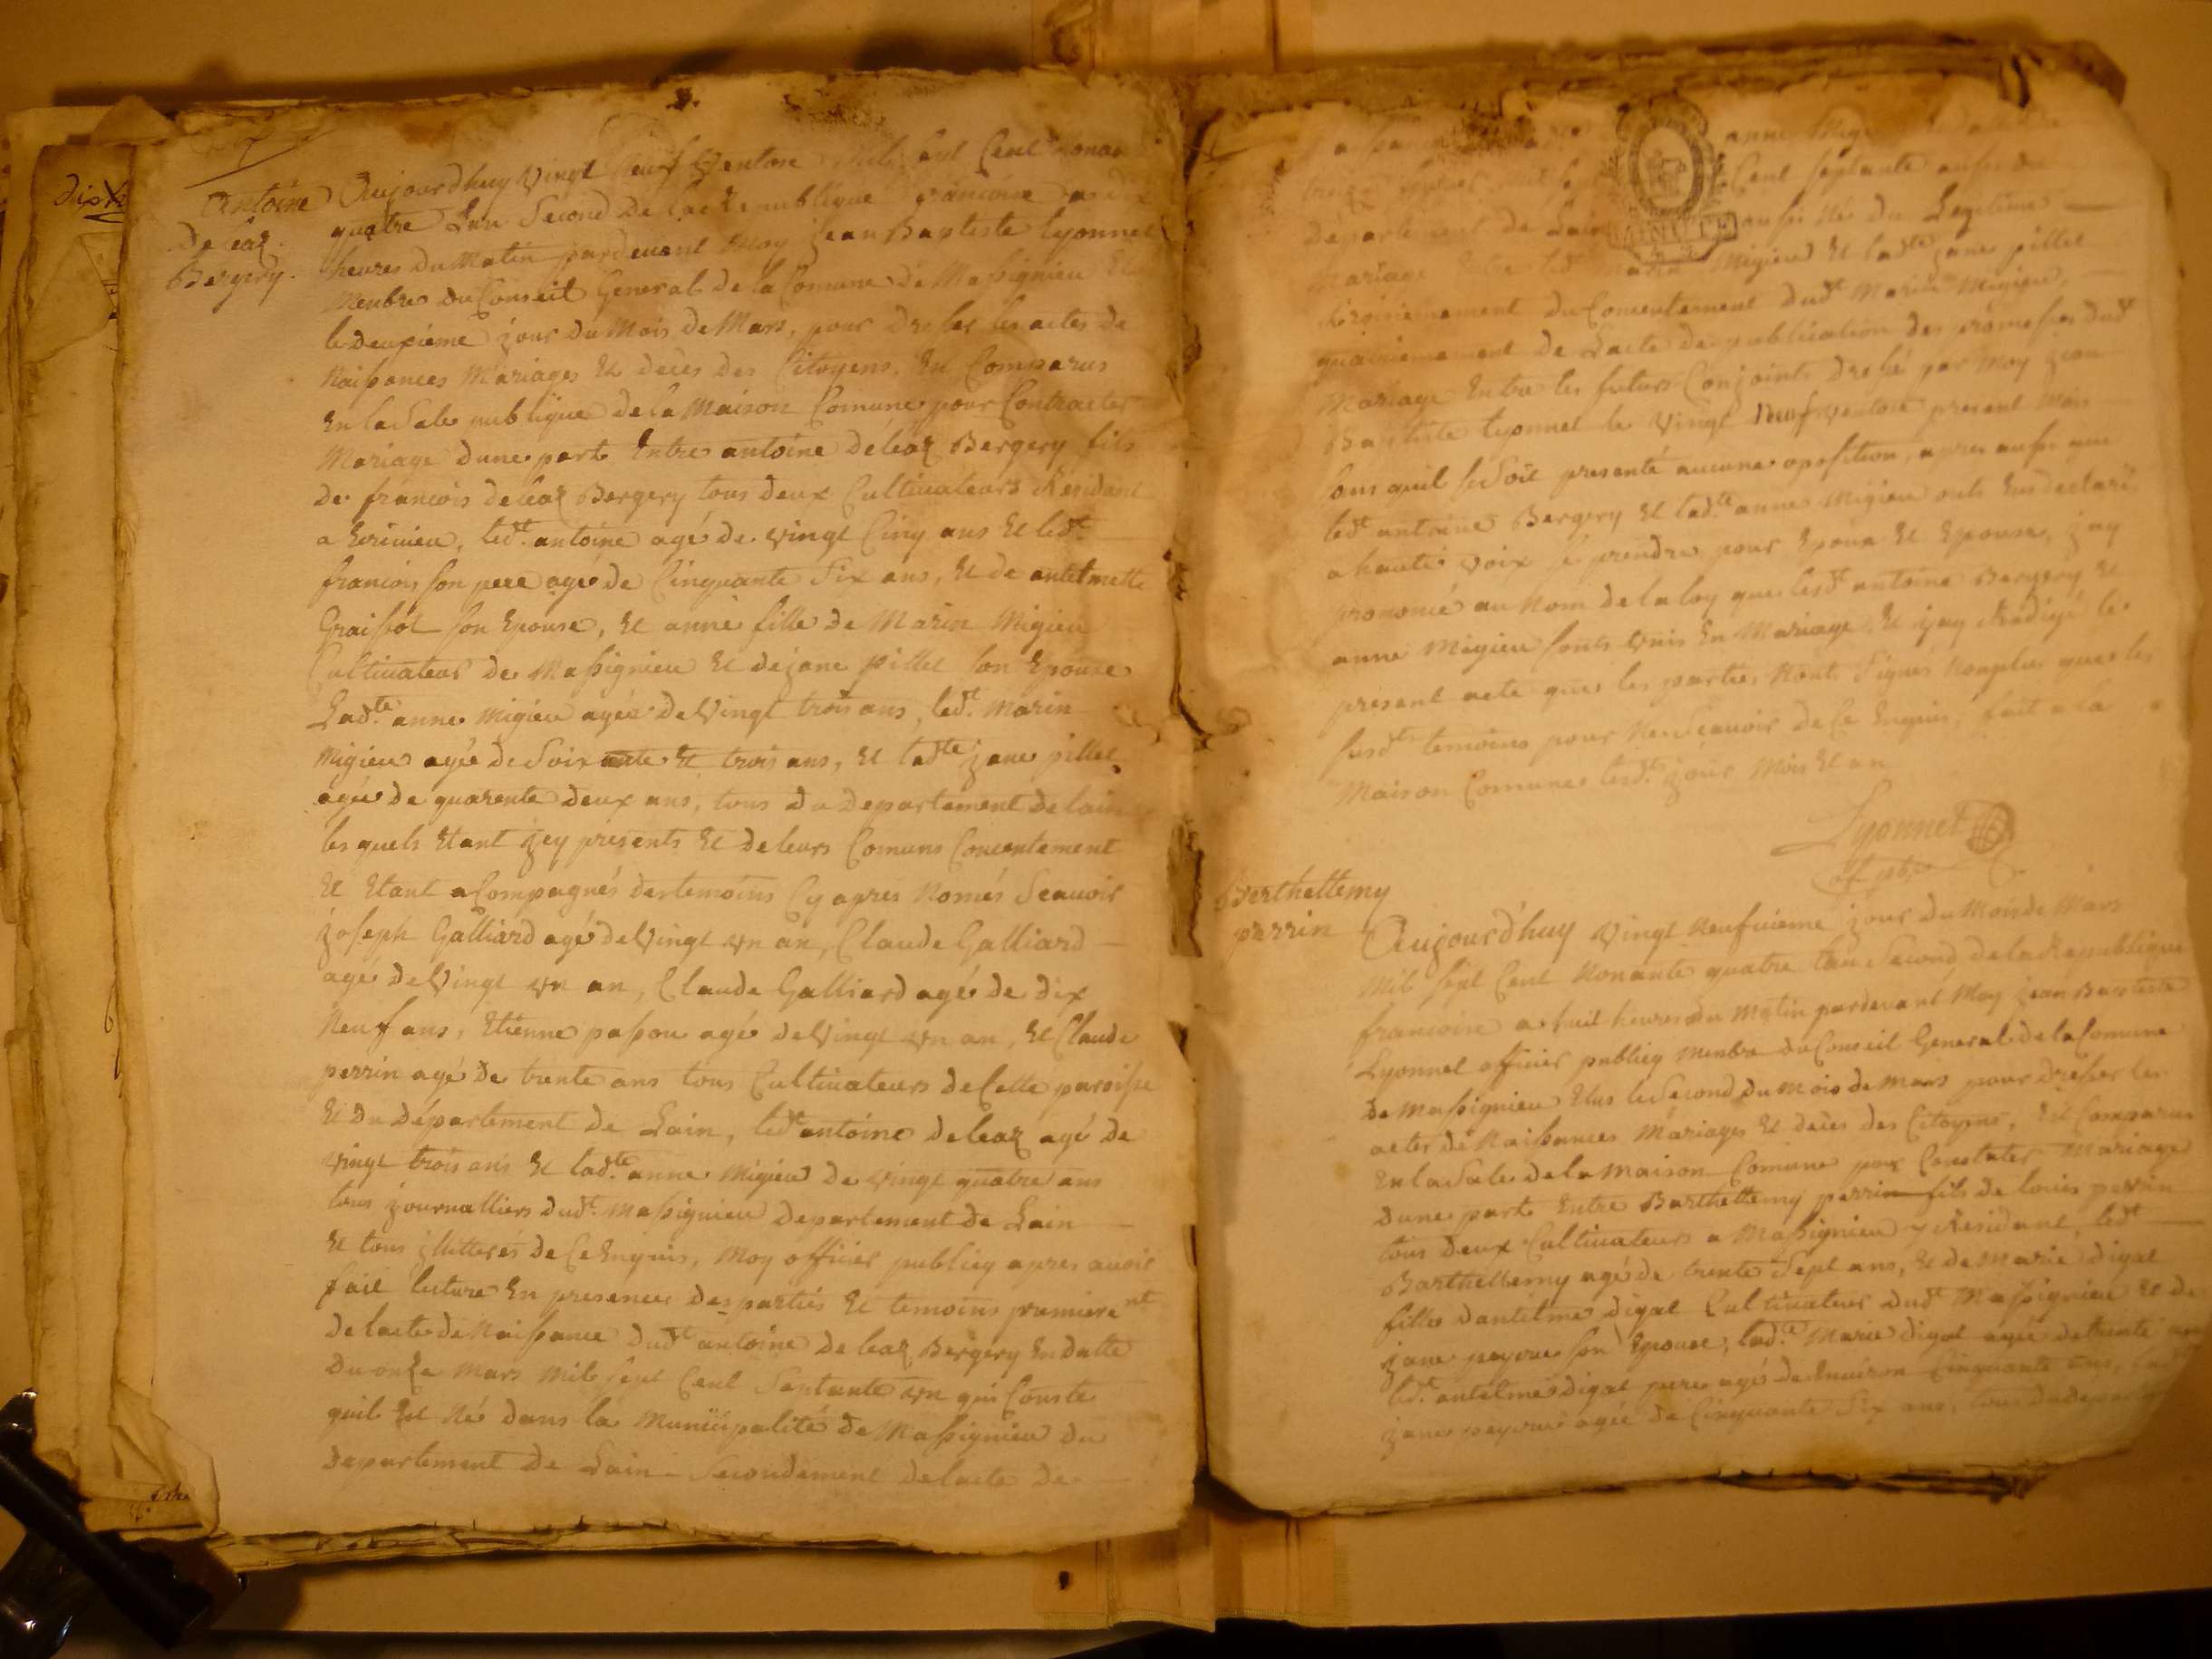 7
Antoine
De leaz
Bergery.
Aujourdhuy Vingt neuf Ventose Mil sept Cent nonante
quatre Lan Second De la Republique francoise a dix
heures Du Matin pardevant Moy Jean Baptiste Lyonnet
Menbre Du Conseil General de la Comune De Massignieu Elu
le Deuxieme jour Du Mois De Mars, pour Dresser les actes de
Naissances Mariages Et deces des Citoyens, En Comparus
En la Sale publique de la Maison Comune pour Contracter
Mariage dune part Entre antoine déleaz Bergery fils
de francois deleaz Bergery tous deux Cultivateurs Residant
a , led.t antoine agé de vingt Cinq ans Et led.t
francois son pere agé de Cinquante Six ans, Et de antelmette
Graissot son Epouse, Et anne fille de Marin Migieu
Cultivateur de Massignieu Et de jane pillet son Epouse
Lad.te anne Migieu agée de Vingt trois ans, led.t Marin
Migieu agée de Soixante Et trois ans, Et lad.te jane pillet
agée de quarente deux ans, tous du departement de lain
les quels Etant jcy presents Et de leurs Comuns Concentement
Et Etant acCompagnés des temoins Cy apres Només Scavoir
joseph Galliard agé de Vingt vn an, Claude Galliard
agé de Vingt vn an, Claude Galliard agé de dix
Neuf ans, Etienne passou agé de Vingt vn an, Et Claude
perrin agé de trente ans tous Cultivateurs de Cette paroisse
Et du département de Lain, led.t antoine deleaz agé de
vingt trois ans Et lad.te anne Migieu de vingt quatre ans
tous journalliers dud.t Massignieu departement de Lain
Et tous jllitterés de Ce Enquis, Moy officier publicq apres avoir
fait lecture En presence des parties Et temoins premierent
de lacte de Naissance dud.t antoine de leaz Bergery En datte
Du onze Mars Mil sept Cent Septante vn qui Conste
quil Est Né dans la Municipalité de Massignieu du
departement de Lain Secondement de lacte de
anne Migieu
Cent septante aussi du
departement de Lain aussi Né du Legitime
Mariage Entre led.t Marin Migieu Et lad.te jane pillet
troisiemement du Concentement dud.t Marin Migieu,
quatriemement de Lacte de publication des promesses dud.t
Mariage Entre les futurs Conjoints dressé par Moy jean
Baptiste Lyonnet le Vingt Neuf ventose present Mois
sans quil se Soit presenté aucune oposition, apres aussi que
led.t antoine Bergery Et lad.te anne Migieu onts declaré
a haute voix se prendre pour Epoux Et Epouse, jay
prononcé au Nom de la loy que lesd.t antoine Bergery Et
anne Migieu sonts vnis En Mariage. Et jay Redigé le
present acte que les parties Nont Signés Nonplus que les
susd.ts temoins pour Ne Scavoir de Ce Enquis, fait a la
Maison Comune lesd.t jour Mois Et an
Lyonnet
Berthellemy
perrin
Aujourd'huy Vingt Neufvieme jour du Mois de Mars
Mil Sept Cent Nonante quatre lan Second de la Republique
francoise a huit heures du Matin pardevant Moy jean Baptiste
Lyonnet officier publicq Menbre du Conseil General de la Comune
De Massignieu Elus le Second du Mois de Mars pour dresser les
actes de Naissances Mariages Et deces des Citoyens, En Comparus
En la Sale de la Maison Comune pour Constater Mariage
dune part Entre Barthellemy perrin fils de louis perrin
tous deux Cultivateurs a Massignieu y Residant, led.t
Barthellemy agé de trente Sept ans, Et de Marie digat
fille dantelme digat Cultivateur dud.t Massignieu Et de
jane son Epouse, lad.te Marie digat agée de trente
led.t antelme digat pere agé de Cinquante ans,
jane agée de Cinquante Six ans, tous du